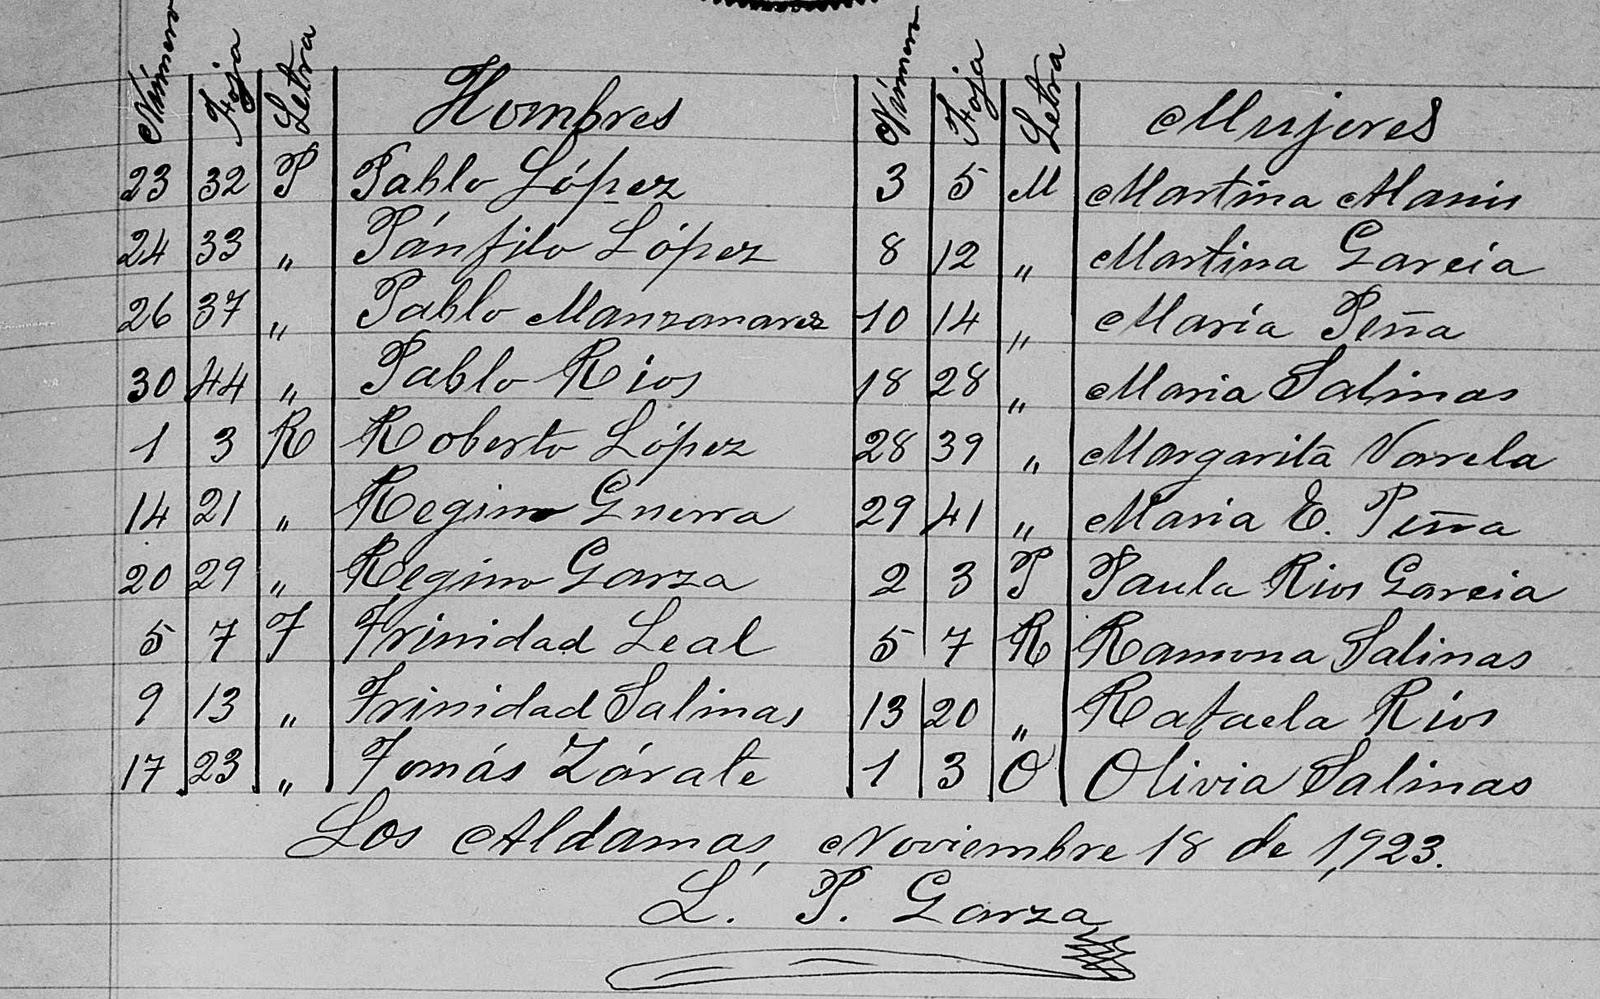 Número Foja Letra Hombres Número Foja Letra Mujeres
23 32 P Pablo López 3 5 M Martina Alanis
24 33 " Pánfilo López 8 12 " Martina Garcia
26 37 " Pablo Manzanarez 10 14 " María Peña
30 44 " Pablo Rios 18 28 " Maria Salinas
1 3 R Roberto López 28 39 " Margarita Varela
14 21 " Regino Guerra 29 41 " Maria E. Peña
20 29 " Regino Garza 2 3 P Paula Rios Garcia
5 7 T Trinidad Leal 5 7 R Ramona Salinas
9 13 " Trinidad Salinas 13 20 " Rafaela Rios
17 23 " Tomás Zárate 1 3 O Olivia Salinas
Los Aldamas, Noviembre 18 de 1,923.
L. P. Garza